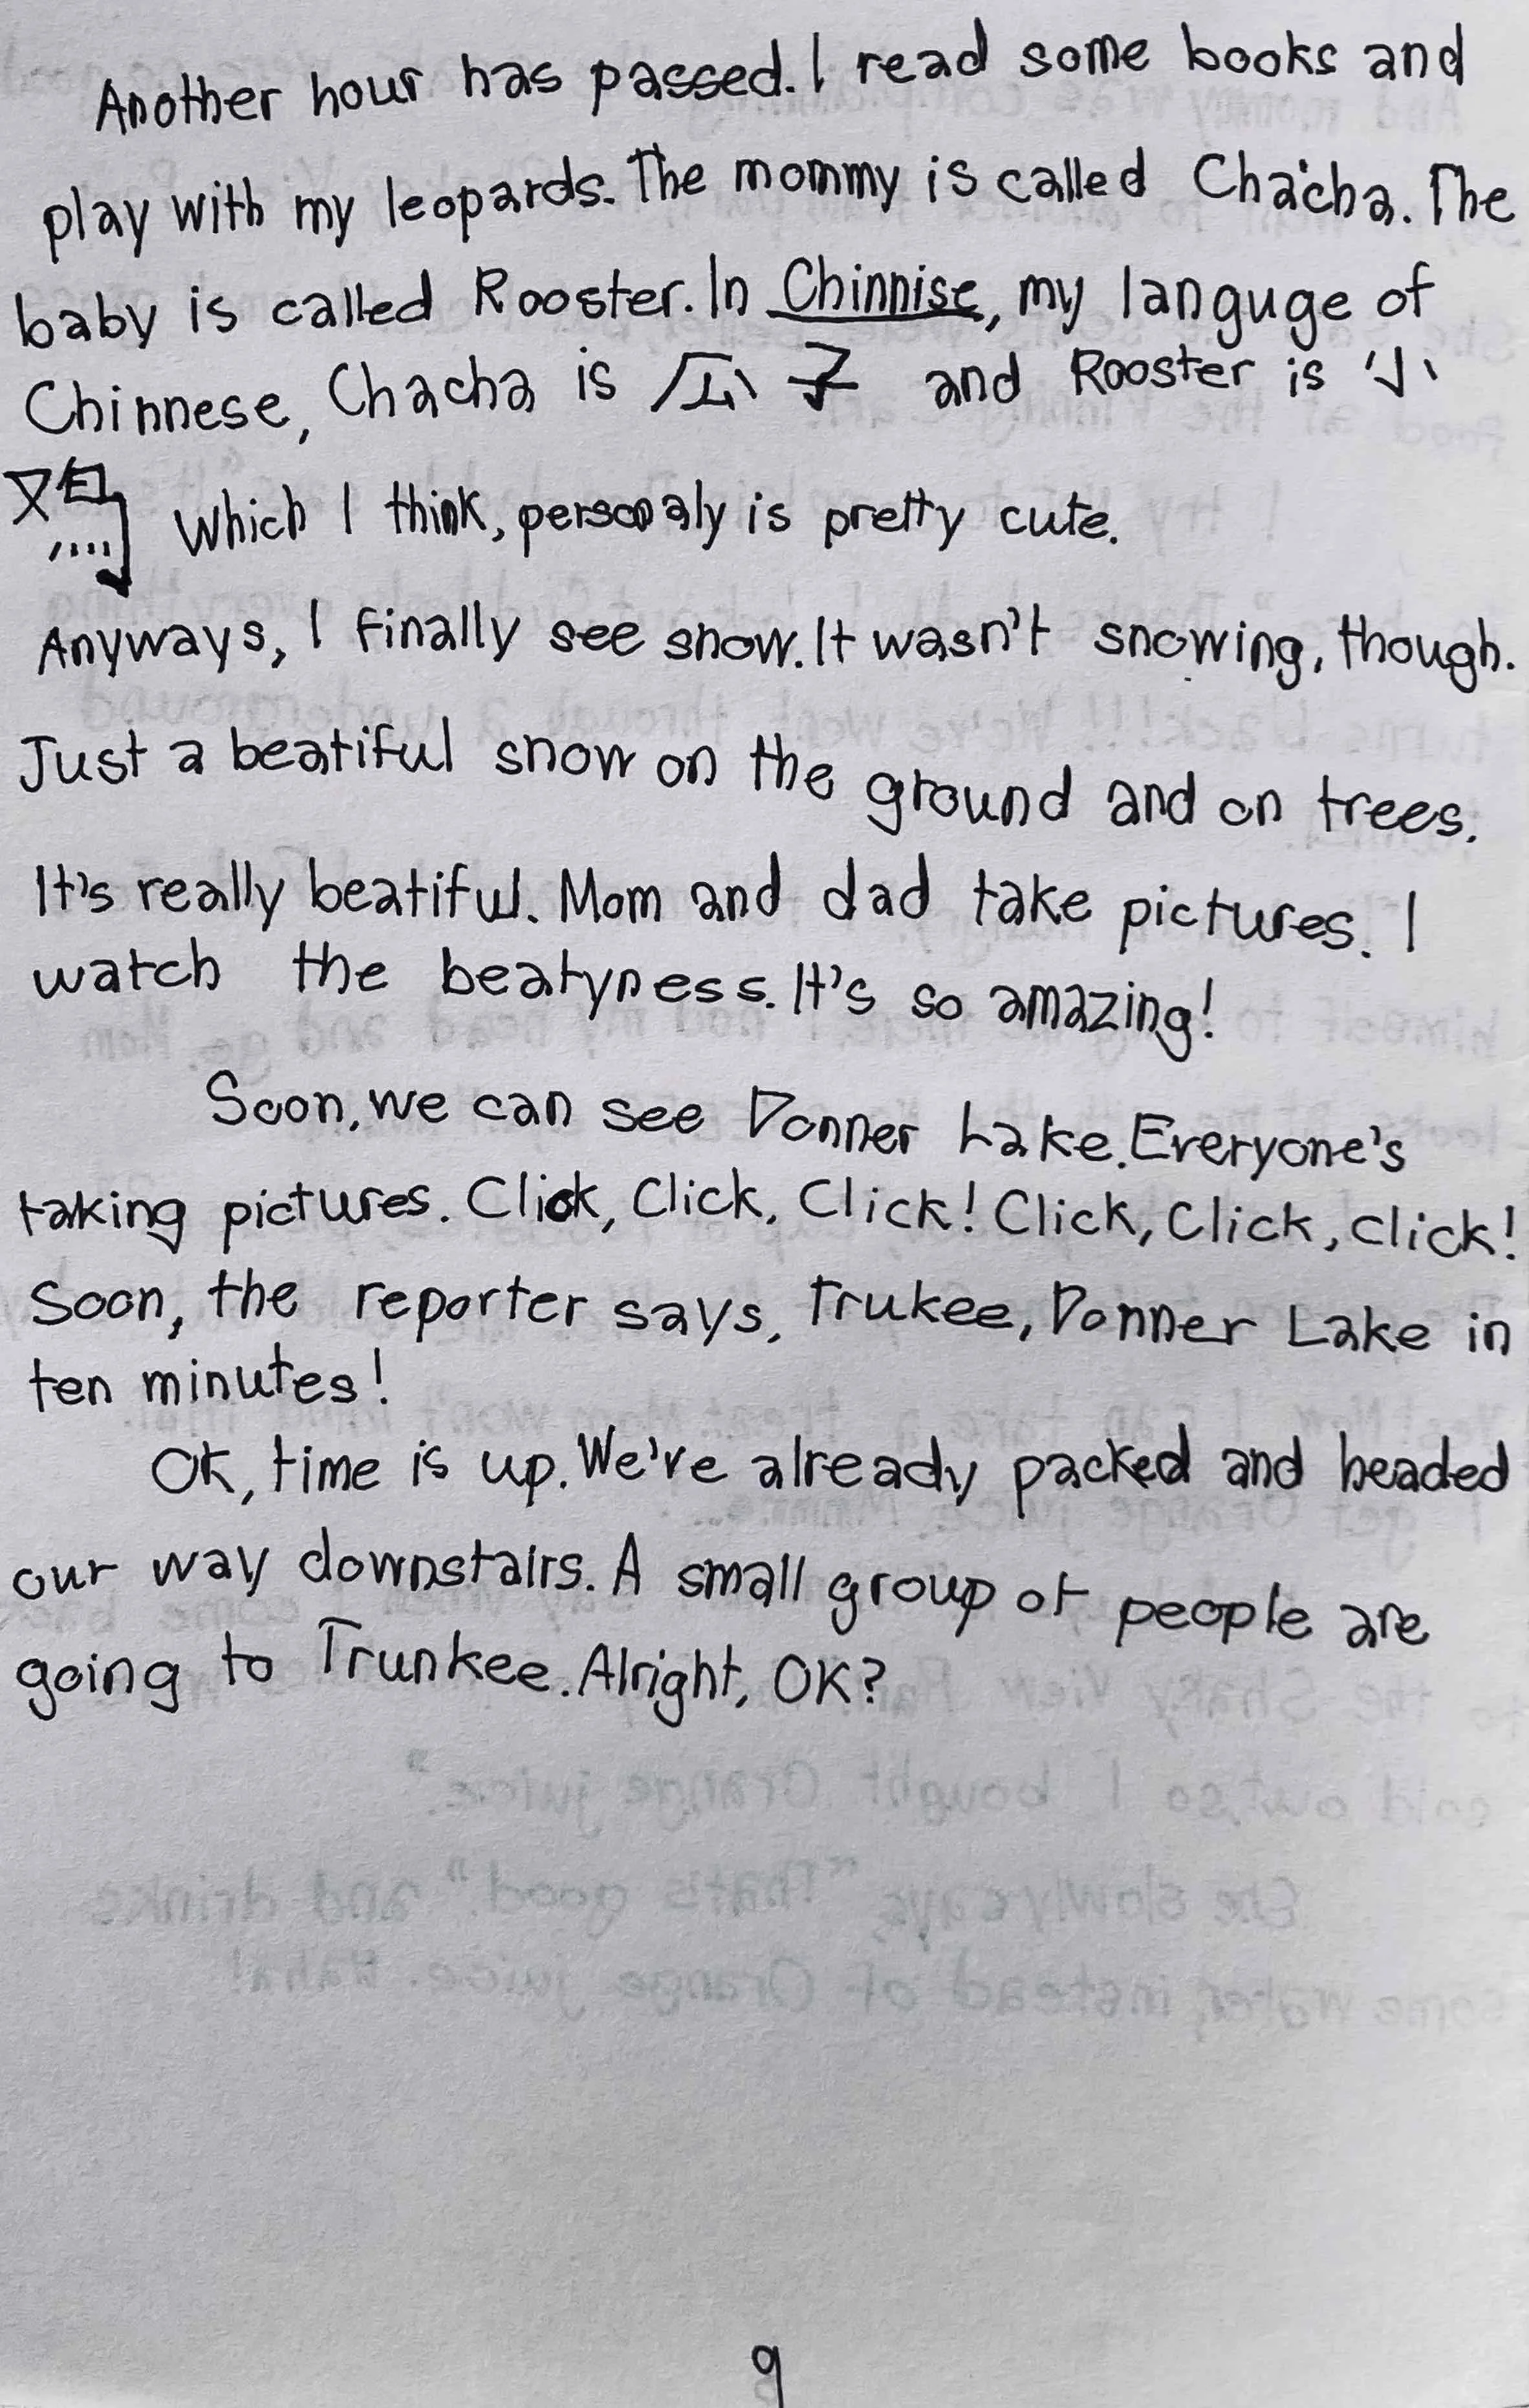 Another hour has passed. I read some books and
play with my leopards. The mommy is called Chacha. The
baby is called Rooster. In Chinnise, my languge of
Chinnese, Chacha is 子 and Rooster is 小
Which I think, personaly is pretty cute.
Anyways, I finally see snow. It wasn't snowing, though.
Just a beatiful snow on the ground and on trees.
It's really beatiful. Mom and dad take pictures. I
watch the beatyness. It's so amazing!
Soon, we can see Donner Lake. Everyone's
taking pictures. Click, Click, Click! Click, Click, Click!
Soon, the reporter says, Trukee, Donner Lake in
ten minutes!
OK, time is up. We've already packed and headed
our way downstairs. A small group of people are
going to Trunkee. Alright, OK?
9